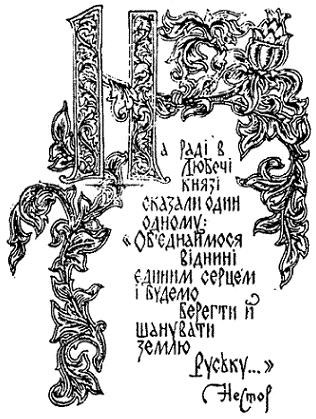 На раді в
Любечі
князі
сказали один
одному:
«Об'єднаймося
віднині
єдиним серцем
і будемо
берегти й
шанувати
землю
Руську...»
Нестор